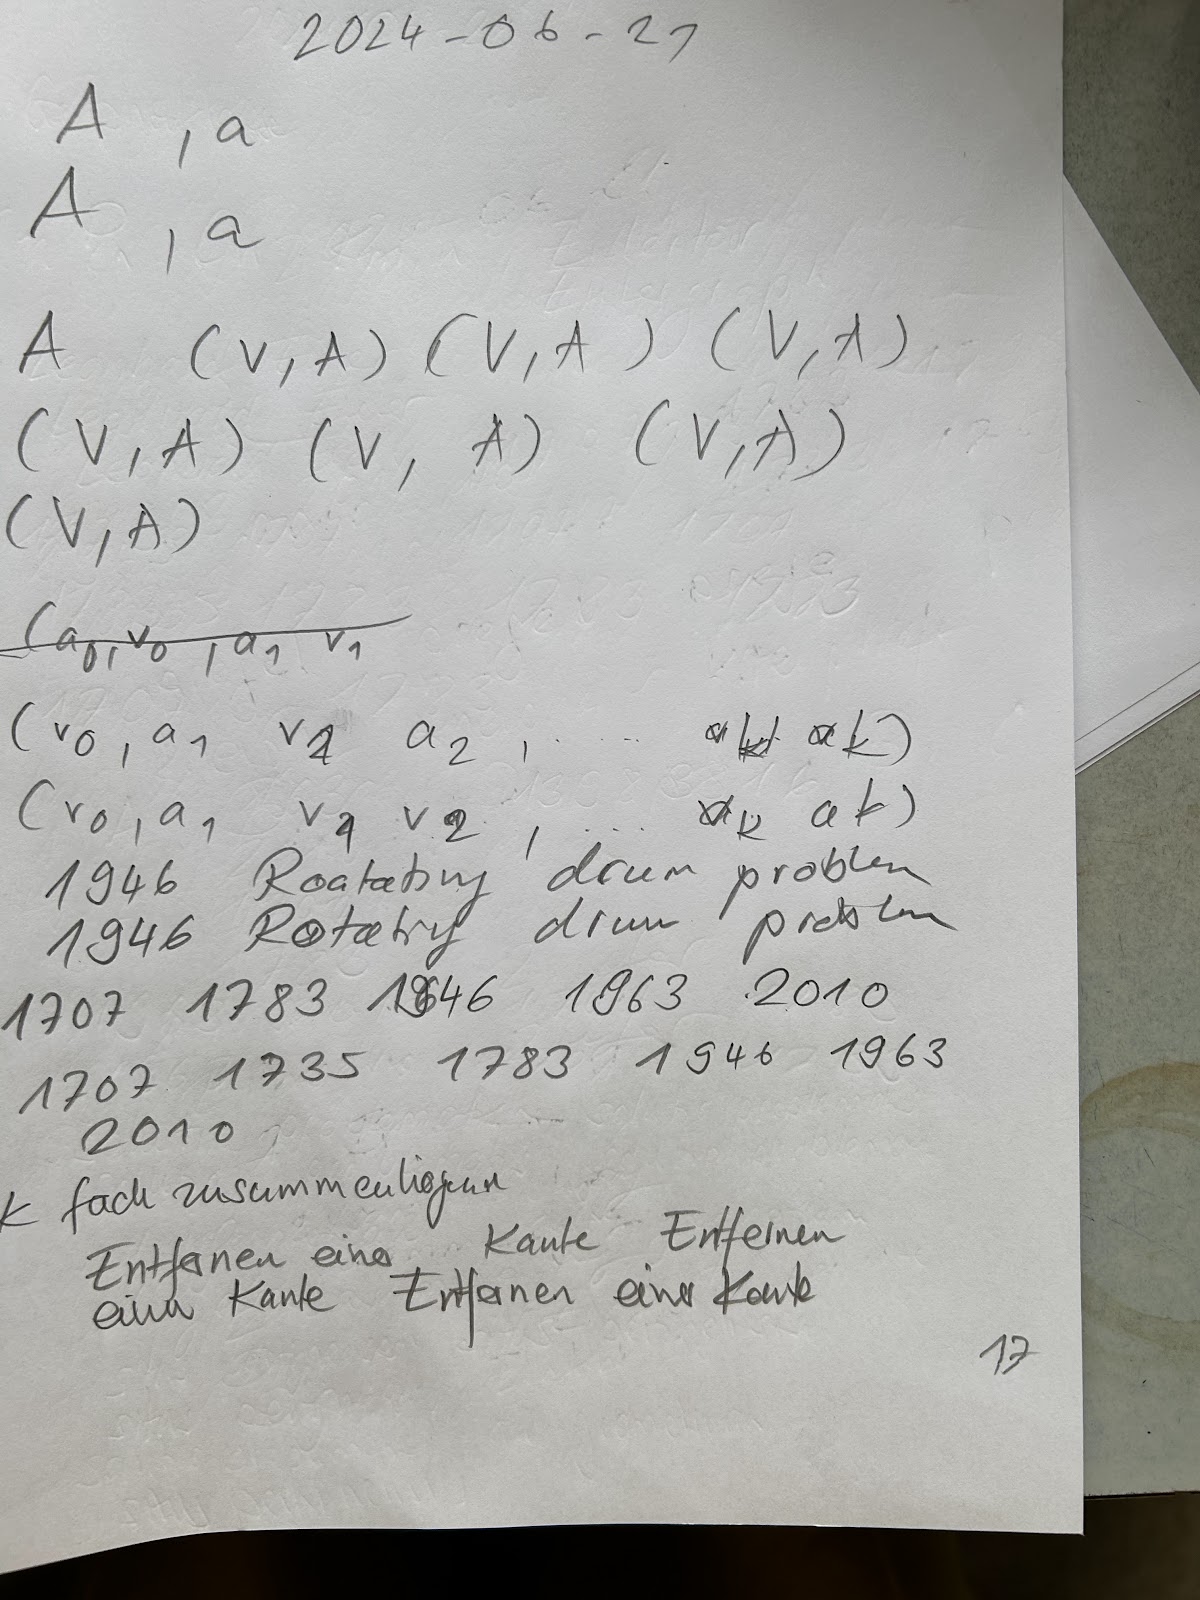 2024-06-21
A , a
A , a
A (V, A) (V, A) (V, A)
(V, A) (V, A) (V, A)
(V, A)
(a0, v0, a1 v1
(v0, a1 v1 a2, ... ak)
(v0, a1 v1 v2, ... k ak)
1946 Roatating drum problem
1946 Rotating drum problem
1707 1783 1946 1963 2010
1707 1735 1783 1946 1963
2010
k fach zusammenhängend
Entfernen einer Kante Entfernen
einer Kante Entfernen einer Kante
17